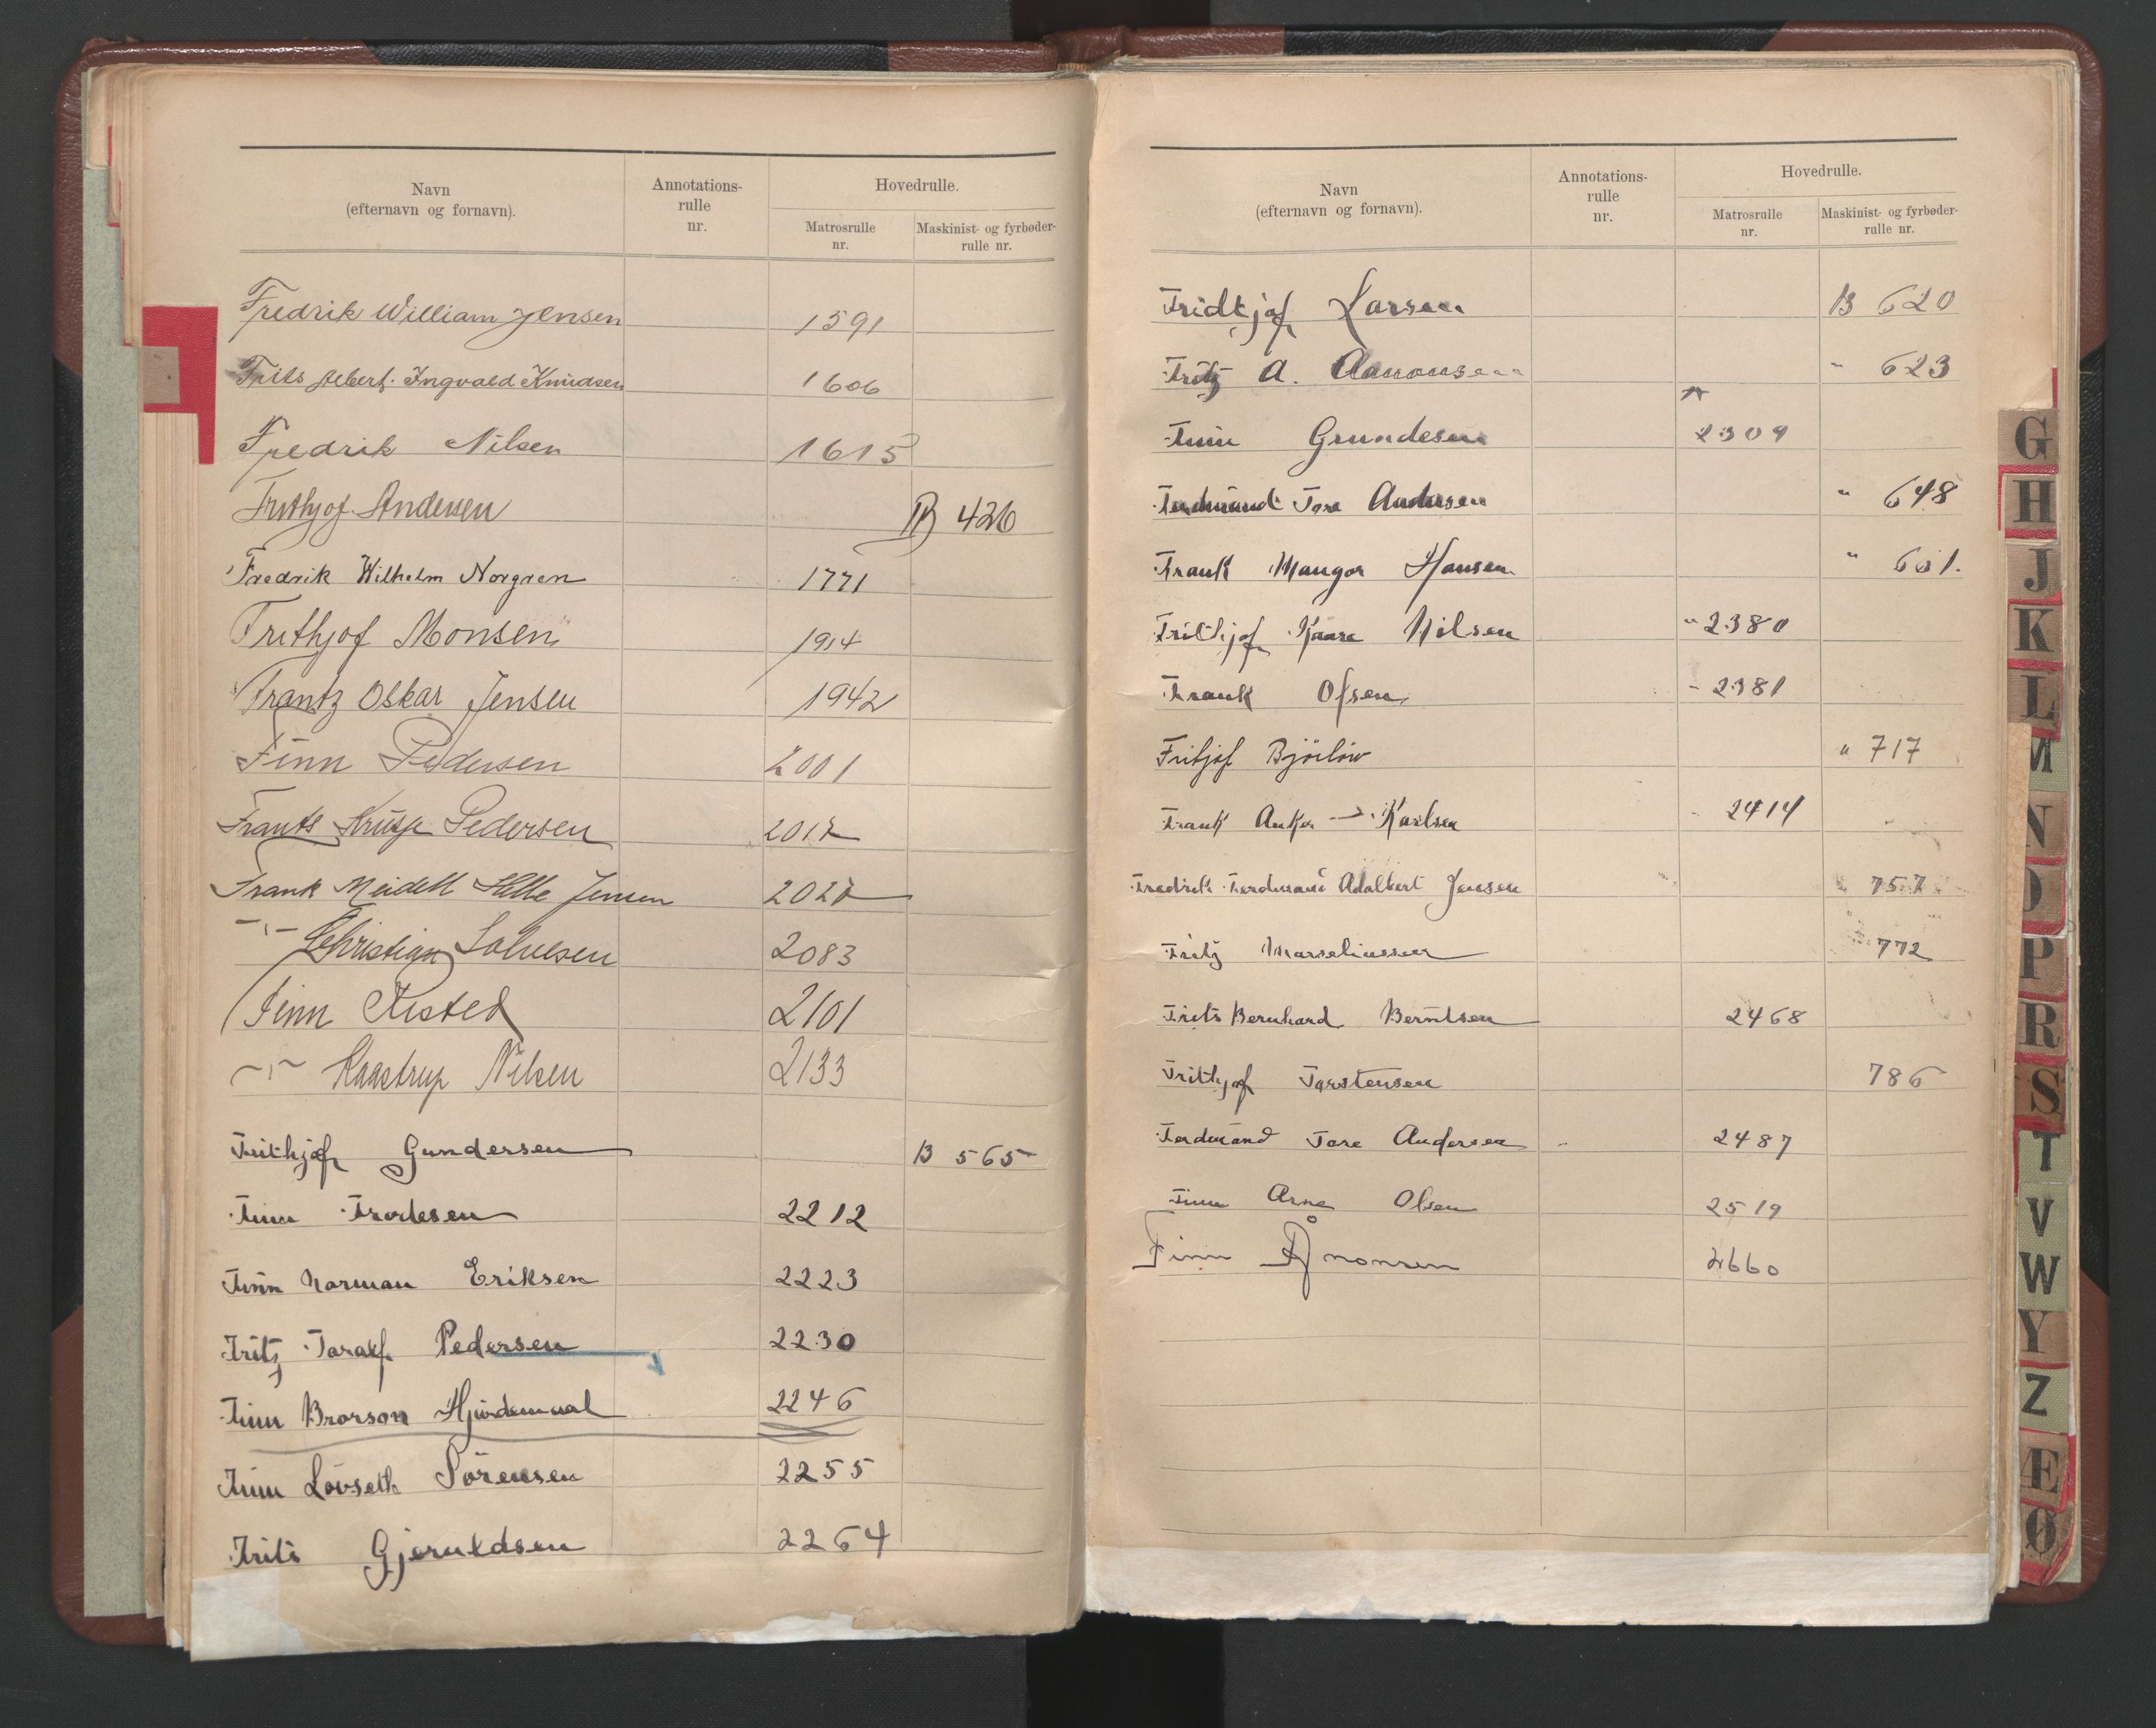 Navn
(efternavn og fornavn).
Annotations-
rulle
nr.
Hovedrulle.
Matrosrulle
nr.
Maskinist- og fyrbøder-
rulle nr.
Fredrik William Jensen 1591
Frits Albert Ingvald Knudsen 1606
Fredrik Nilsen 1615
Frithjof Andersen B 426
Fredrik Wilhelm Norgren 1771
Frithjof Monsen 1914
Frantz Oskar Jensen 1942
Finn Pedersen 2001
Frants Pedersen 2012
Frank Meidell Jensen 2027
-"- Christian Solvesen 2083
Finn 2101
-"- Kaastrup Nilsen 2133
Frithjof Gundersen B 565
Finn Frodesen 2212
Finn Norman Eriksen 2223
Fritz Taralf Pedersen 2230
Finn Brorson Hjørdemaal 2246
Finn Løvseth Sörensen 2255
Frits Gjeruldsen 2264
Navn
(efternavn og fornavn).
Annotations-
rulle
nr.
Hovedrulle.
Matrosrulle
nr.
Maskinist- og fyrbøder-
rulle nr.
Fridtjof Larsen B 620
Fritz A. Aanonsen - 623
Finn Grundesen 2309
Ferdinand Tore Andersen " 648
Frank Mangor Hansen " 661.
Frithjof Kaare Nilsen " 2380
Frank Olsen - 2381
Fritjof " 717
Frank Anker Karlsen - 2414
Fredrik Ferdinand Adalbert Jensen 757
Fritz Marseliussen 772
Frits Bernhard Berntsen 2468
Frithjof Torstensen 786
Ferdinand Tore Andersen 2487
Finn Arne Olsen 2519
Finn Ånonsen 2660
G
H
J
K
L
M
N
O
P
R
S
T
V
W
Y
Z
Æ
Ø